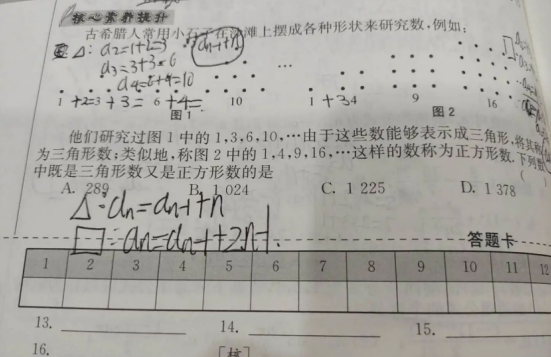 核心素养提升
古希腊人常用小石子在沙滩上摆成各种形状来研究数,例如:
△: a2=1+2=3
a3=3+3=6
a4=6+4=10
an-1+n
…
1 +2=3 +3= 6 +4= 10
1 +3 4 9 16
图1 图2
他们研究过图 1 中的 1,3,6,10,…由于这些数能够表示成三角形,将其称
为三角形数;类似地,称图 2 中的 1,4,9,16,…这样的数称为正方形数.下列数
中既是三角形数又是正方形数的是 (
A. 289 B. 1 024 C. 1 225 D. 1 378
△: an=an-1+n
□: an=an-1+2n-1.
答题卡
1 2 3 4 5 6 7 8 9 10 11 12
13. 14. 15.
16.